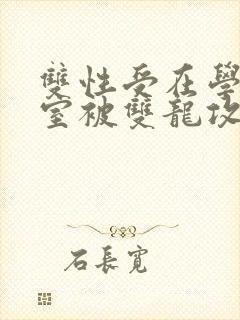 雙性受在學
室被雙龍攻
石長寬